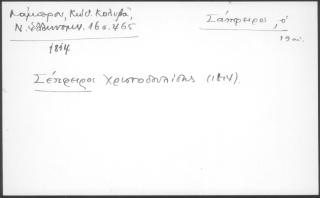 Λάμπρου, Κώδ. Κολυβᾶ,
Ν. Ἑλληνομν. 16 σ. 465
1814
Σάπφειρος, ὁ
19 αἰ.
Σάπφειρος Χριστοδουλίδης (1814).